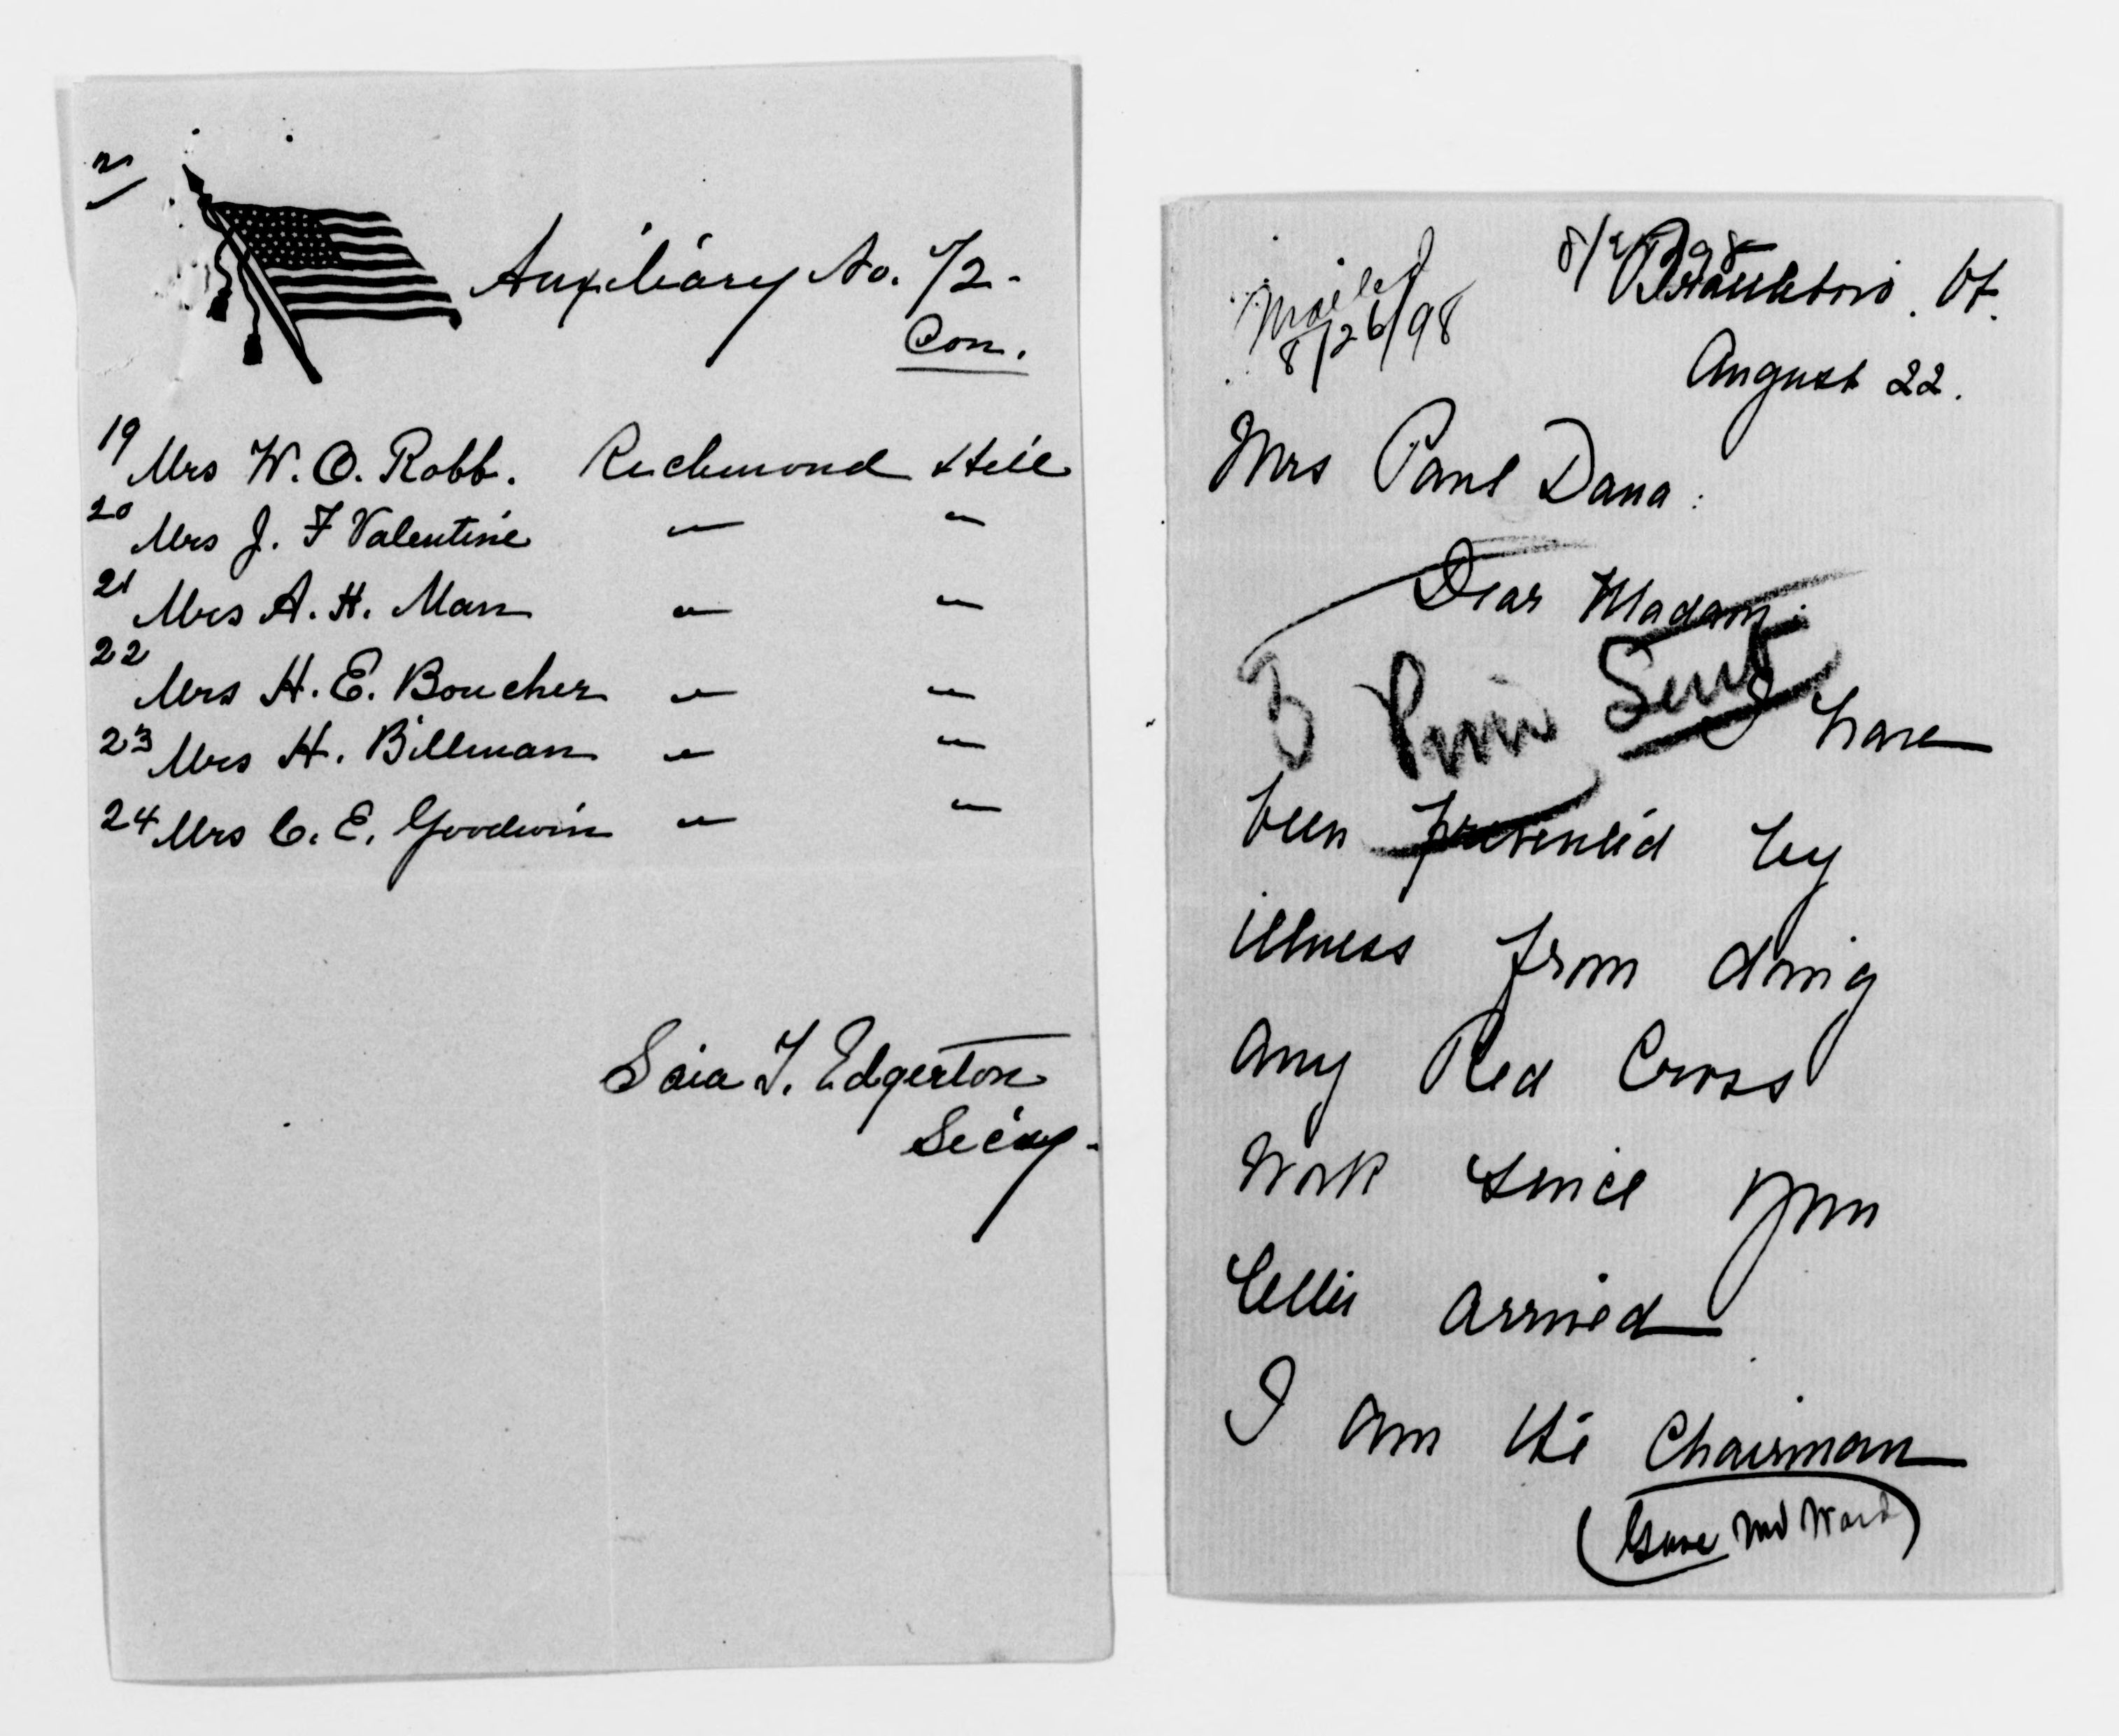 2
Auxiliary No. 72-
Con.
19 Mrs W. O. Robb. Richmond Hill
20 Mrs J. F Valentine " "
21 Mrs A. H. Man " "
22 Mrs H. E. Boucher " "
23 Mrs H. Billman " "
24 Mrs C. E. Goodwin " "
T. Edgerton
Sec'y-
Brattleboro. Vt.
Mailed
8/26/98
August 22.
Mrs Paul Dana:
Dear Madam:
3 Sent
I have
been prevented by
illness from doing
any Red Cross
work since your
letter arrived
I am the Chairman
(Gave Ward)